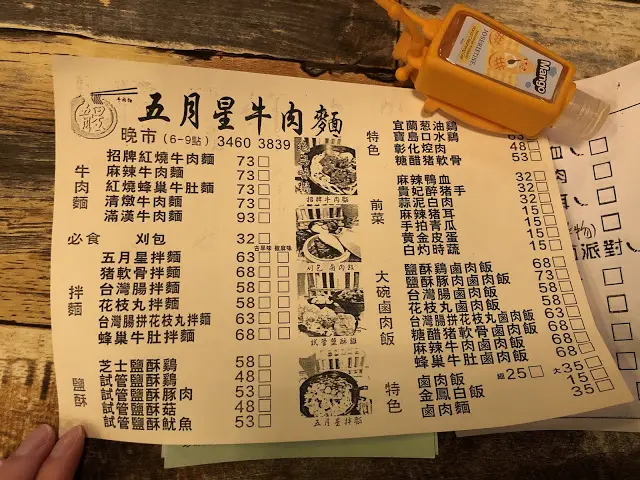 五月星牛肉麵
晚市(6-9點) 3460 3839
牛肉麵
招牌紅燒牛肉麵 73
麻辣牛肉麵 73
紅燒蜂巢牛肚麵 73
清燉牛肉麵 73
滿漢牛肉麵 93
必食 刈包 32
古早味 椒麻味
拌麵
五月星拌麵 63
豬軟骨拌麵 68
台灣腸拌麵 58
花枝丸拌麵 58
台灣腸拼花枝丸拌麵 63
蜂巢牛肚拌麵 68
鹽酥
芝士鹽酥鷄 58
試管鹽酥鷄 48
試管鹽酥豚肉 53
試管鹽酥菇 48
試管鹽酥魷魚 53
招牌牛肉麵
刈包 鹵肉飯
試管鹽酥雞
五月星拌麵
特色
宜蘭葱油鷄
寶島口水鷄 63
彰化焢肉 48
糖醋豬軟骨 53
前菜
麻辣鴨血 32
貴妃醉豬手 32
蒜泥白肉 32
麻辣豬耳 15
手拍青瓜 15
黃金皮蛋 15
白灼時蔬 15
大碗鹵肉飯
鹽酥鷄鹵肉飯 68
鹽酥豚肉鹵肉飯 73
台灣腸鹵肉飯 58
花枝丸鹵肉飯 58
台灣腸拼花枝丸鹵肉飯 63
糖醋豬軟骨鹵肉飯 68
麻辣牛肉鹵肉飯 68
蜂巢牛肚鹵肉飯 68
特色
鹵肉飯 細25 大35
金鳳白飯 15
鹵肉麵 35
Mango
物)
派對